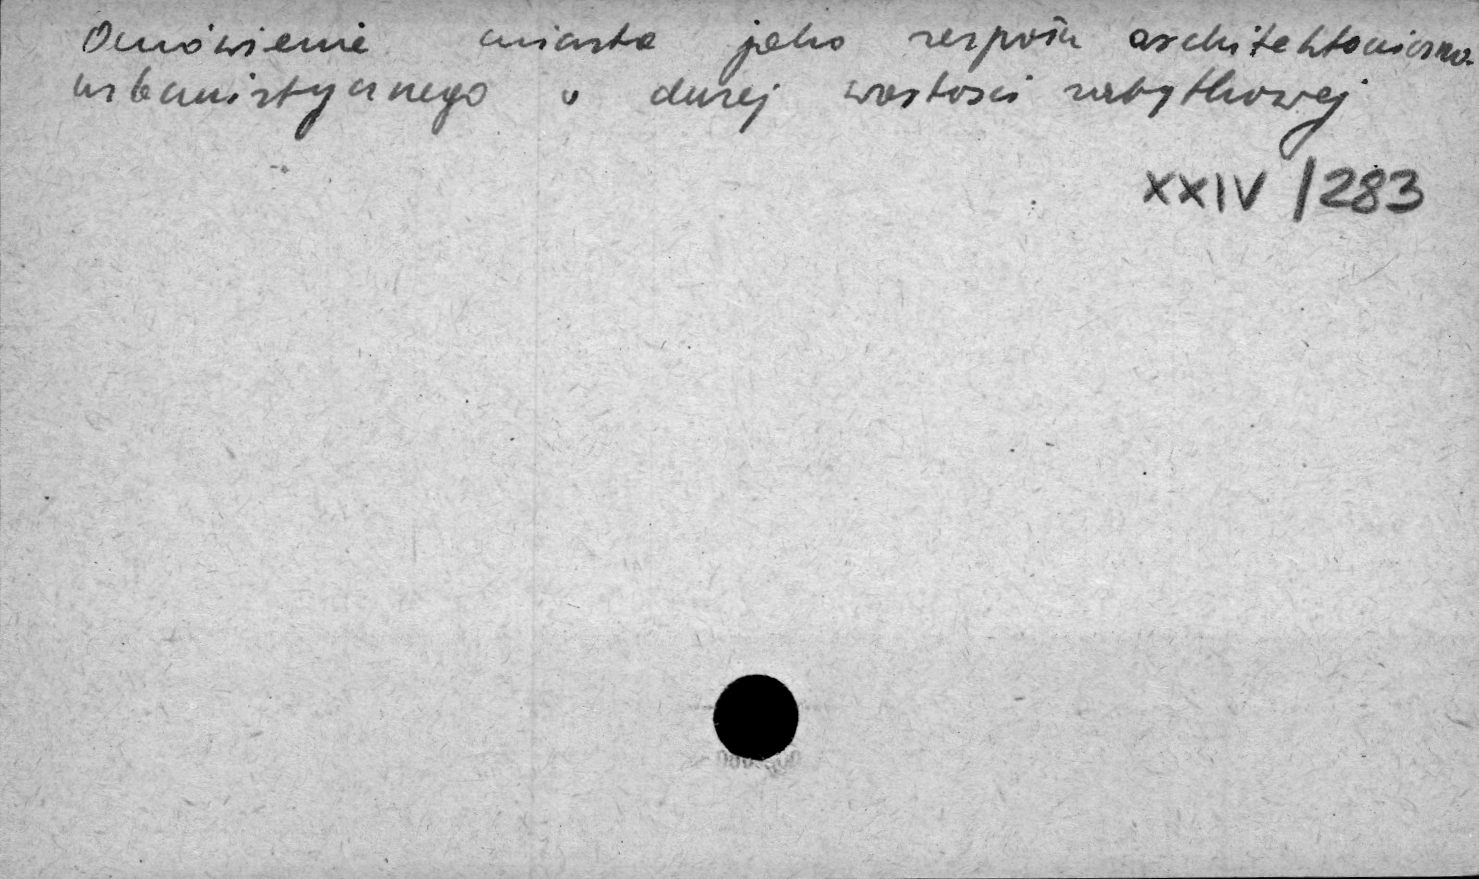 Omówienie miasta jako zespołu architektoniczno-
urbanistycznego o dużej wartości zabytkowej
XXIV/283